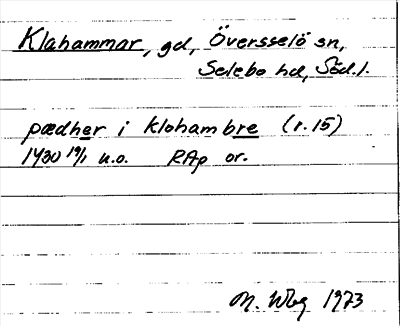 Klahammar, gd, Översselö sn,
Selebo hd, Söd.l.
pædher i klohambre (r.15)
1430 19/1 u.o. RAp or.
M. Wbg 1973